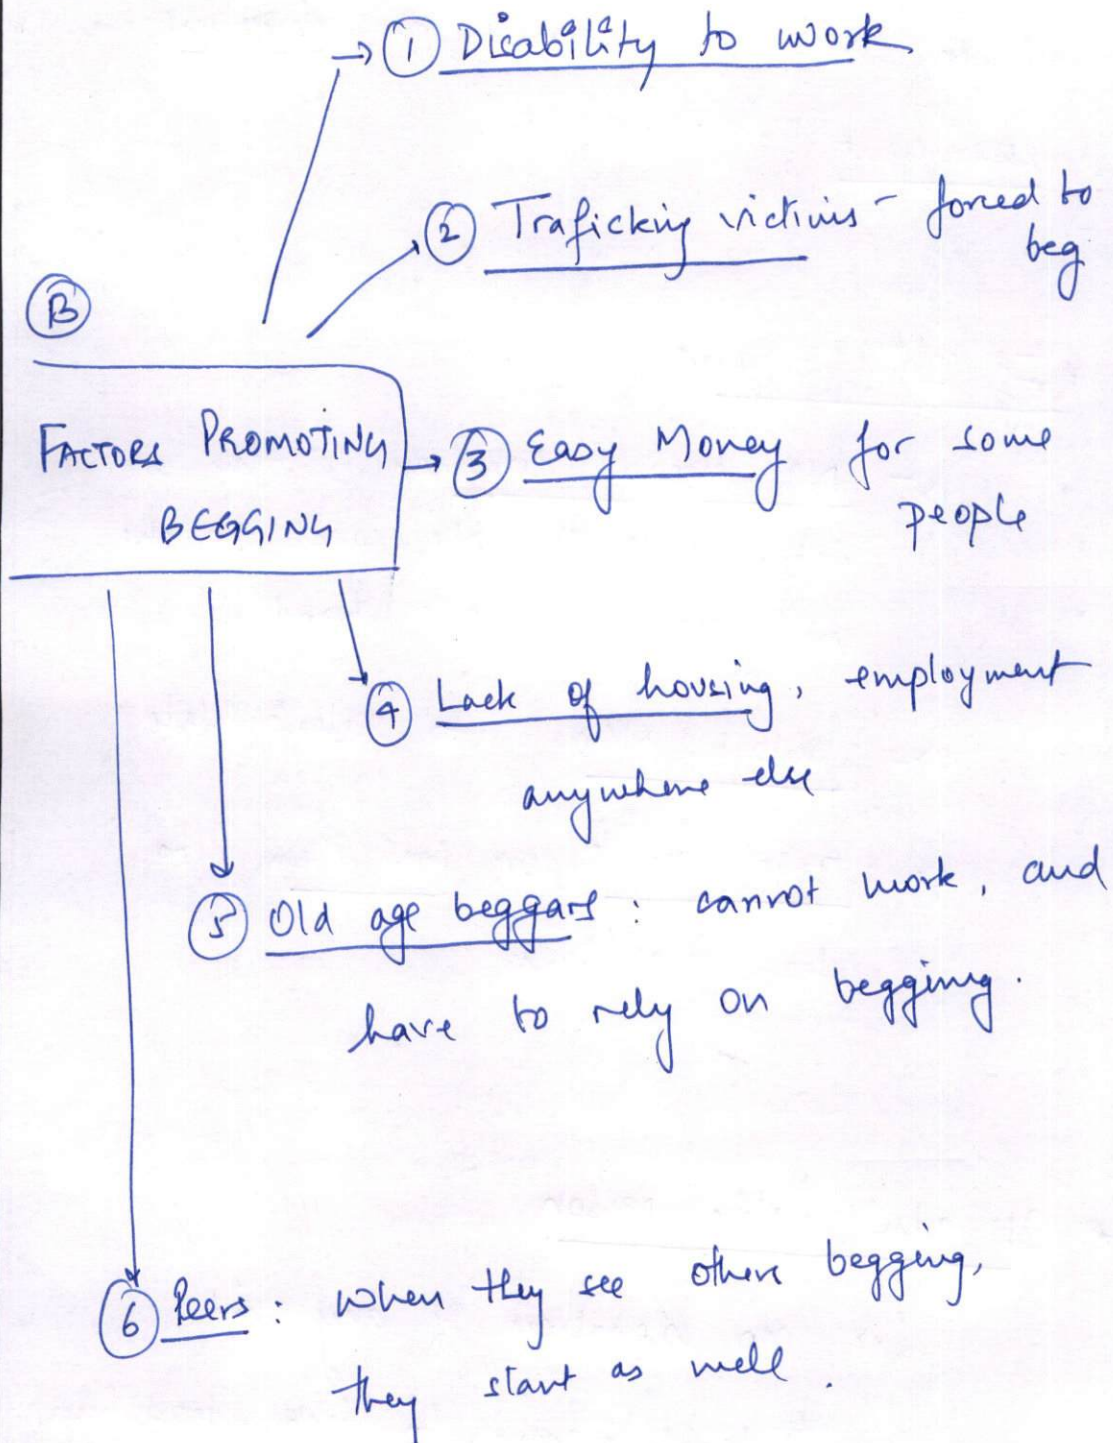 ① Disability to work
② Traficking victims - forced to
beg
Ⓑ
FACTORS PROMOTING
BEGGING
③ Easy Money for some
people
④ Lack of housing, employment
anywhere else
⑤ Old age beggars : cannot work, and
have to rely on begging.
⑥ Peers : when they see others begging,
they start as well.